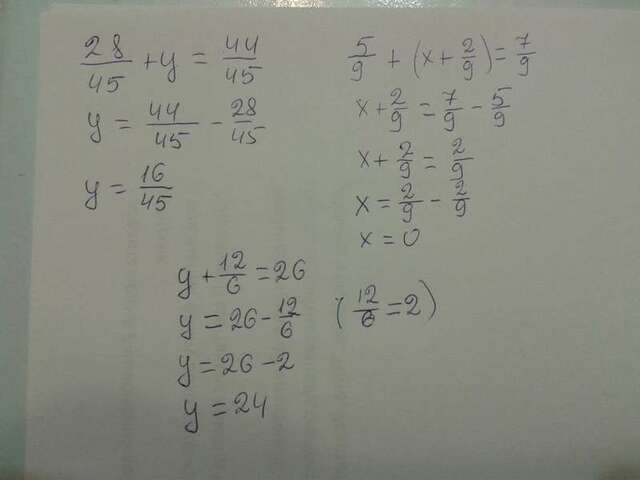 28/45 + y = 44/45
y = 44/45 - 28/45
y = 16/45
5/9 + (x + 2/9) = 7/9
x + 2/9 = 7/9 - 5/9
x + 2/9 = 2/9
x = 2/9 - 2/9
x = 0
y + 12/6 = 26
y = 26 - 12/6 (12/6 = 2)
y = 26 - 2
y = 24